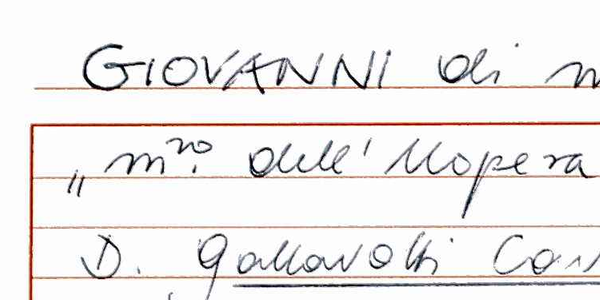 GIOVANNI di m
„ m.ro dell' Uopera
D. Gallavotti Cav